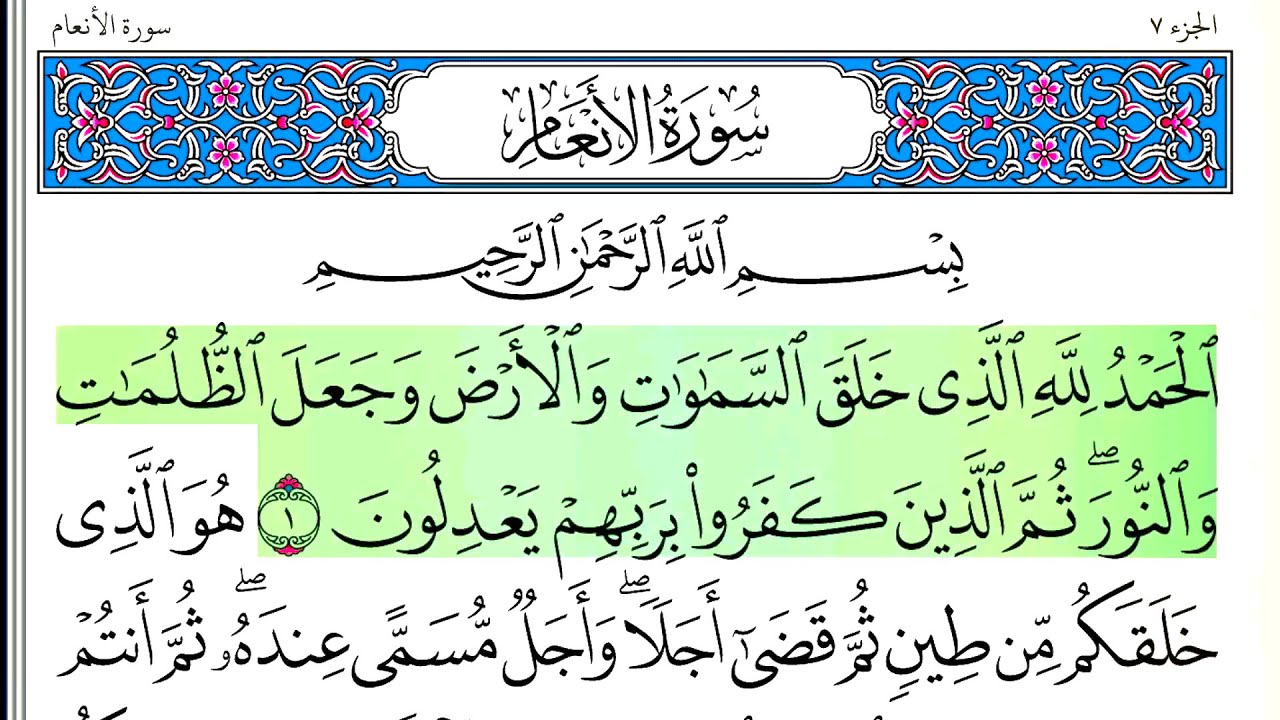 الجزء ٧
سورة الأنعام
سُورَةُ الأَنْعَامِ
بِسْمِ ٱللَّهِ ٱلرَّحْمَٰنِ ٱلرَّحِيمِ
ٱلْحَمْدُ لِلَّهِ ٱلَّذِى خَلَقَ ٱلسَّمَٰوَٰتِ وَٱلْأَرْضَ وَجَعَلَ ٱلظُّلُمَٰتِ
وَٱلنُّورَ ۖ ثُمَّ ٱلَّذِينَ كَفَرُوا۟ بِرَبِّهِمْ يَعْدِلُونَ ١ هُوَ ٱلَّذِى
خَلَقَكُم مِّن طِينٍ ثُمَّ قَضَىٰٓ أَجَلًا ۖ وَأَجَلٌ مُّسَمًّى عِندَهُۥ ۖ ثُمَّ أَنتُمْ